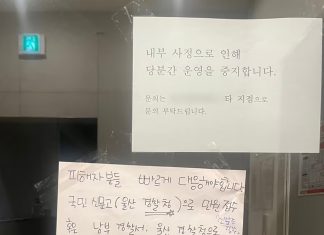 내부 사정으로 인해
당분간 운영을 중지합니다.
문의는 타 지점으로
문의 부탁드립니다.
피해자분들 빠르게 대응해야합니다
국민 신문고(울산 경찰청)으로 민원 접수
남부 경찰서, 울산 경찰청으로